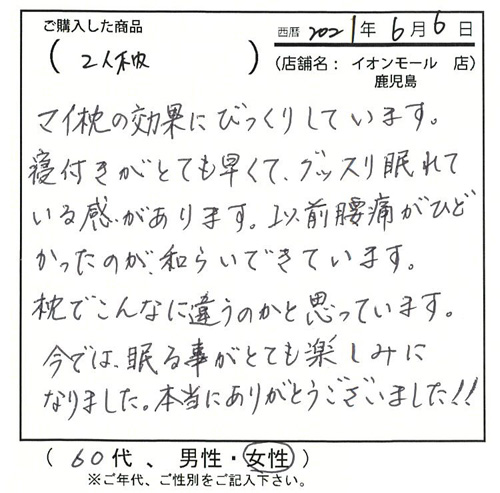 ご購入した商品
西暦 2021年 6月 6日
( 2人枕 )
(店舗名: イオンモール 店)
鹿児島
マイ枕の効果にびっくりしています。
寝付きがとても早くて、グッスリ眠れて
いる感があります。以前腰痛がひど
かったのが、和らいできています。
枕でこんなに違うのかと思っています。
今では、眠る事がとても楽しみに
なりました。本当にありがとうございました!!
( 60代 、 男性・女性 )
※ご年代、ご性別をご記入下さい。